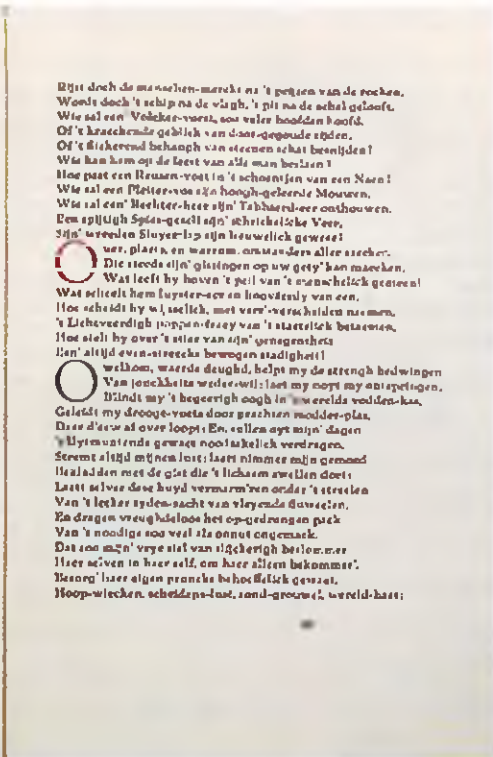 Rijst doch de menschen-merckt na 't prijsen van de rocken,
Wordt doch 't schip na de vlagh, 't pit na de schel gelooft,
Wie sal een Volcker-voest, soo veler hoofden hoofd,
Of 't kraeckende geblick van door-gegoude zijden,
Of 't flickerend behangh van steenen schat benijden?
Wie kan hem op de leest van alle man
Hoe past een Reusen-voet in 't schoentjen van een Naen?
Wie sal een Pleiter-vos sijn hoogh-geleerde Mouwen,
Wie sal een' Rechter-heer sijn' Tabbaerd-eer onthouwen,
Een spijtigh Spies-gesell sijn' schrickelicke Veer,
Sijn' weeuwen Sluyer-lap sijn
Over, plaets, en waerom, omstanders aller saecken,
Die steeds sijn' gissingen op uw gety' kan maecken,
Wat leeft hy boven 't peil van 't menschelick gemeen!
Wat scheelt hem
Hoe scheidt hy wijsselick, met verr'-verscheiden namen,
't Lichtveerdigh poppen-fraey van 't statelick betaemen,
Hoe stelt hy over 't stier van sijn' genegentheit
Een' altijd even-streecks bewogen stadigheit!
O welkom, waerde deughd, helpt my de strengh bedwingen
Van jonckheits weder-wil; laet my noyt my ontspringen,
Blindt my 't begeerigh oogh in 's werelds vodden-kas,
Geleidt my drooge-voets door prachten modder-plas,
Daer d'eew al over loopt; En, sullen oyt mijn' dagen
't Uytmuntende gewaet noodsakelick verdragen,
Stremt altijd mijnen lust; laet nimmer mijn gemoed
Beladden met de gist die 't lichaem swellen doet;
Laet selver dese huyd vermarm'ren onder 't streelen
Van 't lecker syden-sacht van vleyende fluweelen,
En dragen vreughdeloos het op-gedrongen pack
Van 't noodige soo veel als onnut ongemack.
Dat soo mijn' vrye siel van slickerigh beslommer
Haer selven in haer self, om haer alleen bekommer',
Besorg' haer eigen proncks behoeffelick gewaet,
Hoop-wiecken, scheidens-lust, sond-grouwel, wereld-haet;